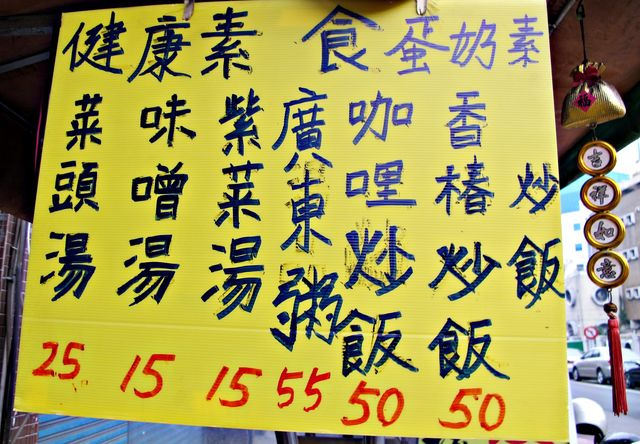 健康素食蛋奶素
菜頭湯
25
味噌湯
15
紫菜湯
15
廣東粥
55
咖哩炒飯
50
香椿炒飯
50
炒飯
吉祥如意